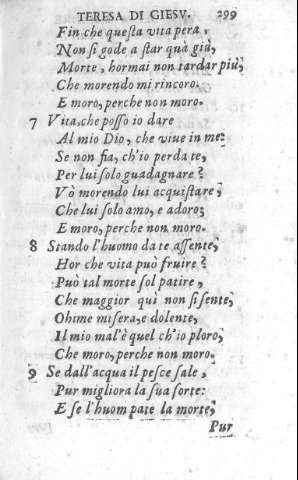 TERESA DI GIESV. 299
Fin che queſta vita pera,
Non ſi gode a ſtar quà giù,
Morte, hormai non tardar più,
Che morendo mi rincoro.
E moro, perche non moro.
7 Vita, che poſſo io dare
Al mio Dio, che viue in me:
Se non ſia, ch'io perda te,
Per lui ſolo guadagnare?
Vò morendo lui acquiſtare,
Che lui ſolo amo, e adoro;
E moro, perche non moro.
8 Stando l'huomo da te aſſente,
Hor che vita può fruire?
Può tal morte ſol patire,
Che maggior quì non ſi ſente,
Ohime miſera, e dolente,
Il mio mal'è quel ch'io ploro,
Che moro, perche non moro.
9 Se dall'acqua il peſce ſale,
Pur migliora la ſua ſorte:
E ſe l'huom pate la morte,
Pur